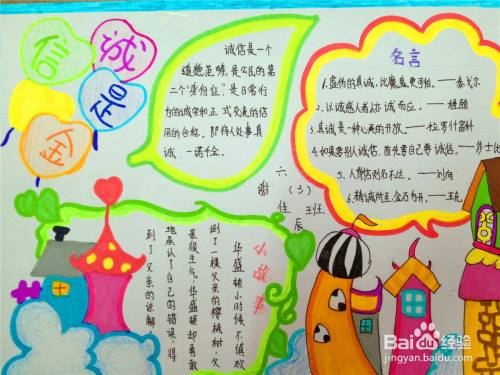 诚信
是
金
诚信是一个
道德范畴,是公民的第
二个"身份证",是日常行
为的诚实和正式交流的信
用的合称。即待人处事真
诚、一诺千金。
名言
1.虚伪的真诚,比魔鬼更可怕。——泰戈尔
2.以诚感人者,人亦诚而应。——程颐
3.真诚是一种心灵的开放。——拉罗什富科
4.如果要别人诚信,首先要自己要诚信。——莎士比
5.人背信则名不达。——刘向
6.精诚所至,金石为开。——王充
六(3)班
谢佳辰
小故事
华盛顿小时候不慎砍
倒了一棵父亲的樱桃树,父
亲很生气,华盛顿却勇敢
地承认了自己的错误,得
到了父亲的谅解,
Baidu经验
jingyan.baidu.com